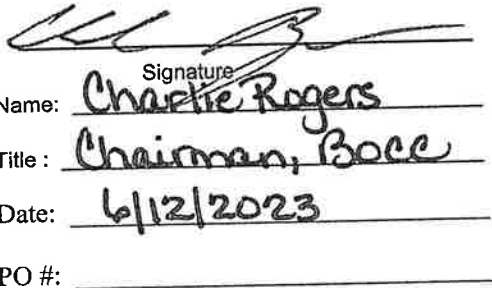 Signature
Name: Charlie Rogers
Title : Chairman, BOCC
Date: 6/12/2023
PO #: